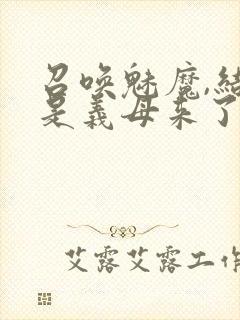 召唤魅魔,结
是义母来了
艾露艾露工作